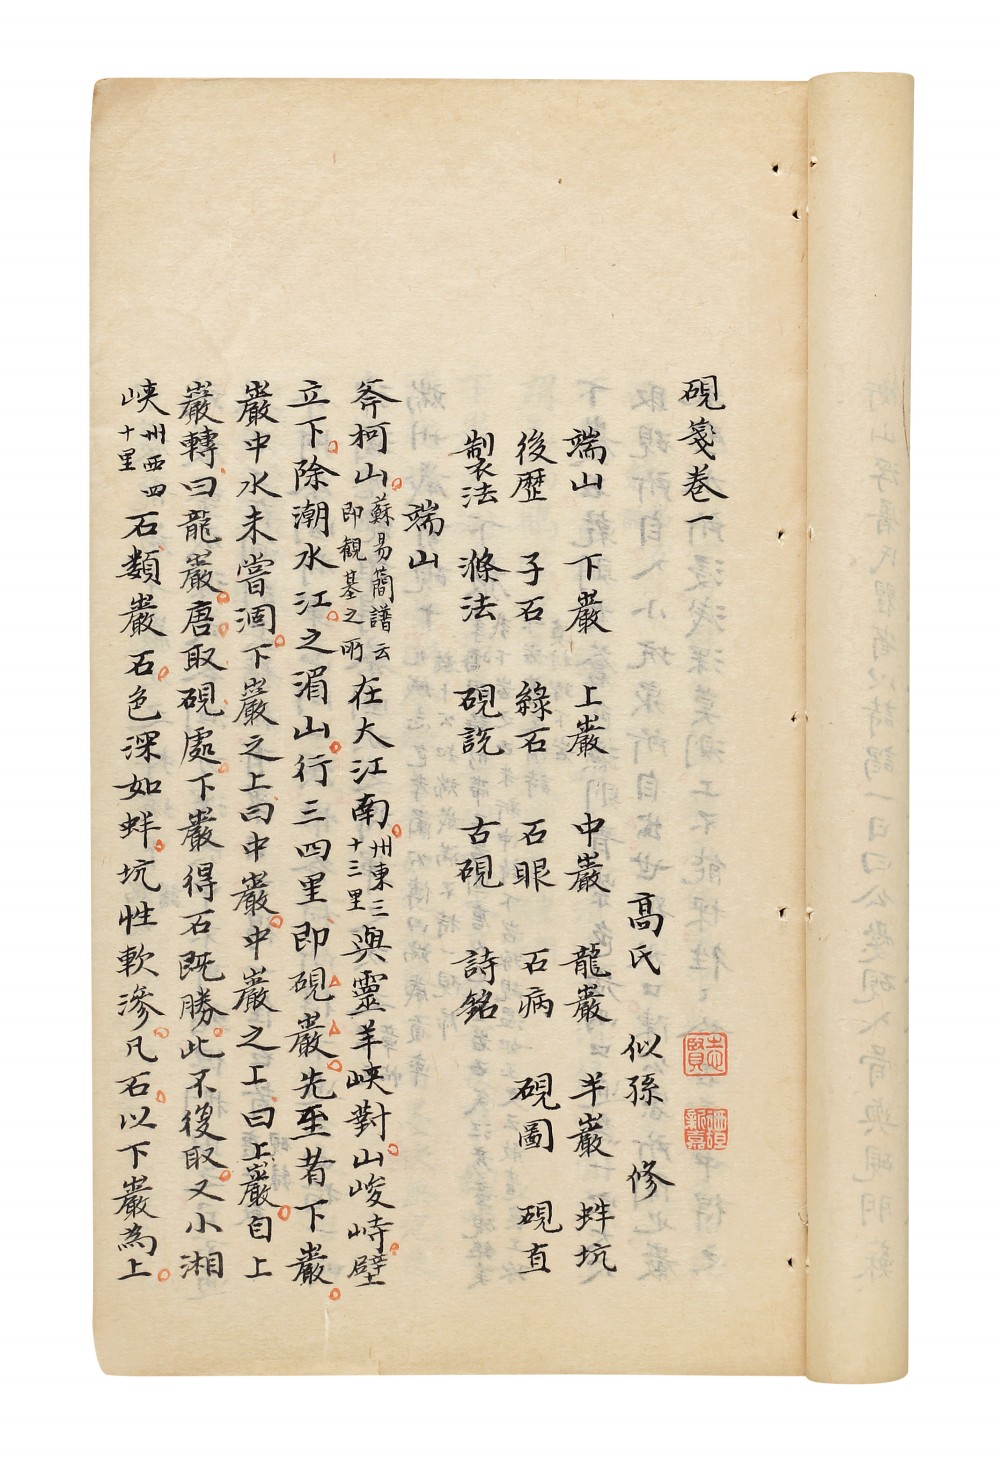 硯箋卷一
高氏 似孫 修
端山 下巖 上巖 中巖 龍巖 半巖 蚌坑
後歷 子石 綠石 石眼 石病 硯圖 硯直
製法 滌法 硯說 古硯 詩銘
端山
斧柯山蘇易簡譜云即觀棊之所在大江南州東三十三里與靈羊峽對山峻峙壁
立下除潮水江之湄山行三四里即硯巖先至者下巖
巖中水未嘗涸下巖之上曰中巖中巖之上曰上巖自上
巖轉曰龍巖唐取硯處下巖得石既勝此不復取又小湘
峽州西四十里石類巖石色深如蚌坑性軟滲凡石以下巖為上